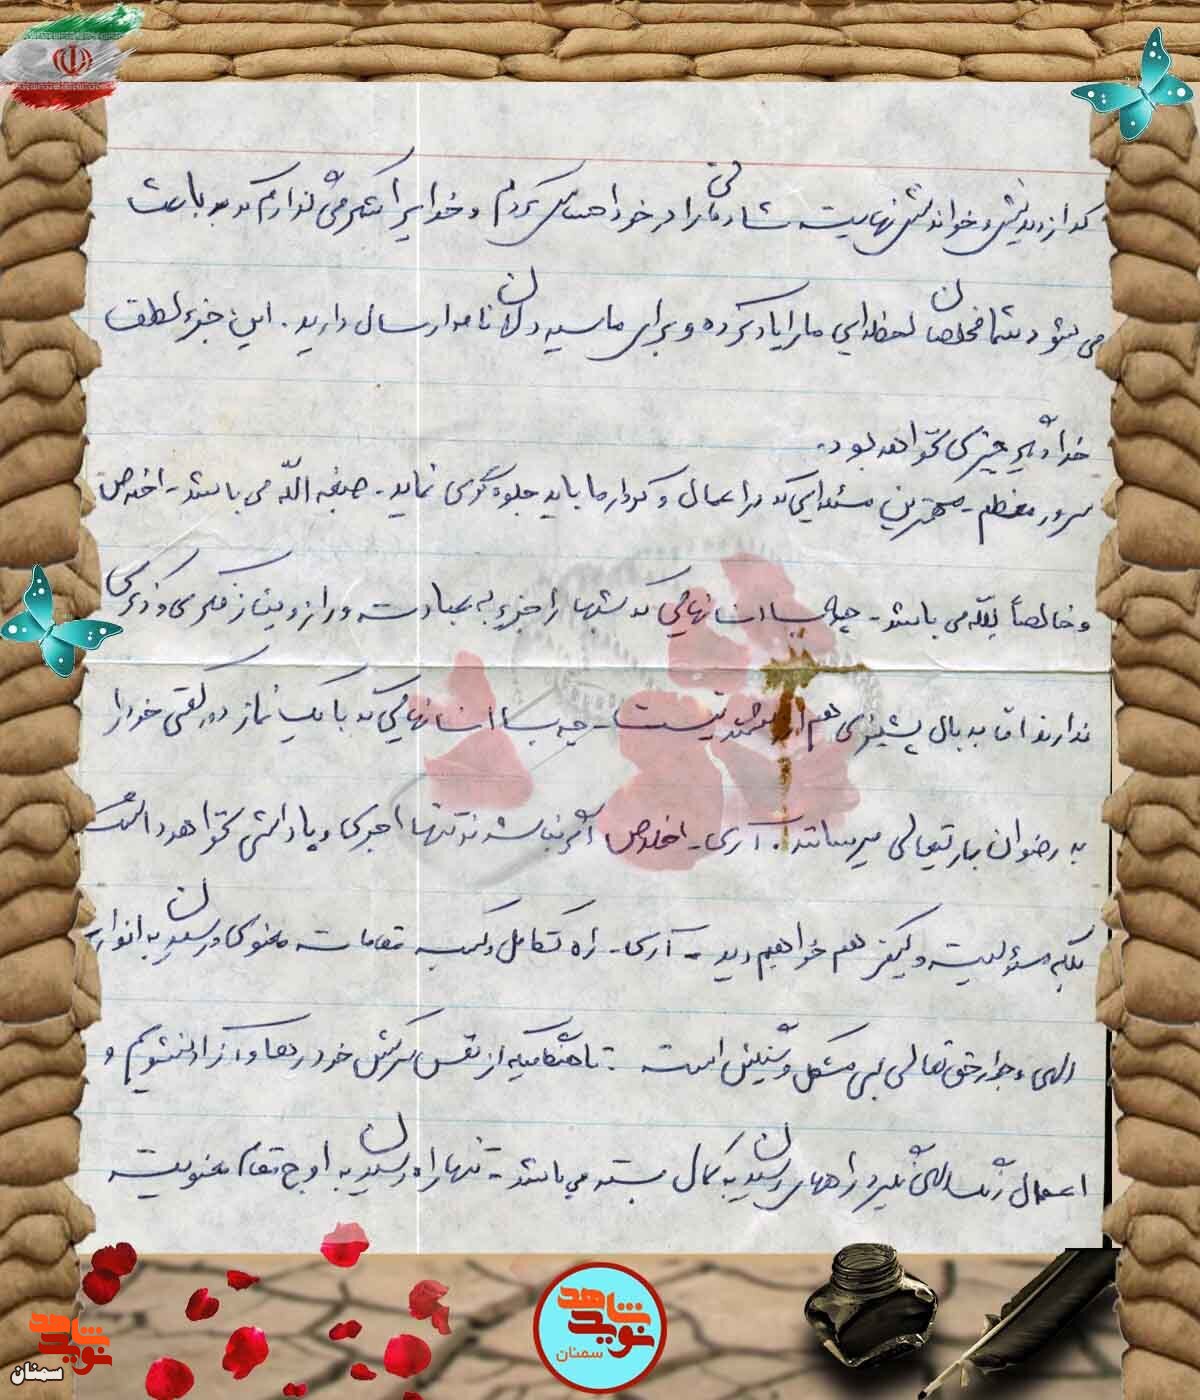 که از دیدنش و خواندنش نهایت شادمانی را در خود احساس کردم و خدایرا تشکر می گذارم که باعث
می شود شما مخلصان لحظه ایی ما را یاد کرده و برای ما سیه دلان نامه ارسال دارید. این جزء لطف
خداوندی چیزی نخواهد بود.
سرور معظم - مهمترین مسئله ایی که در اعمال و کردار ما باید جلوه گری نماید - صبغه الله می باشد - اخلاص
و خالصاً لله می باشد - چه بسا انسانهایی که شبها را جزء به عبادت و راز و نیاز فکری و ذکری
ندارند اما به بال پشیزی هم ارزشمند نیست - چه بسا انسانهایی که با یک نماز دو رکعتی خود را
به رضوان باریتعالی میرسانند. آری - اخلاص اگر نباشد نه تنها اجری و پاداشی نخواهد داشت
بلکه مسئولیت و کیفر هم خواهیم دید - آری - راه تکامل و کسب مقامات معنوی و رسیدن به انوار
الهی و جوار حق تعالی بسی مشکل و سنگین است. تا هنگامیکه از نفس سرکش خود رها و آزاد نشویم و
اعمال رنگ الهی نگیرد راههای رسیدن به کمال بسته می باشد - تنها راه رسیدن به اوج مقام معنویت
شاهد
نوید
سمنان
شاهد
نوید
سمنان